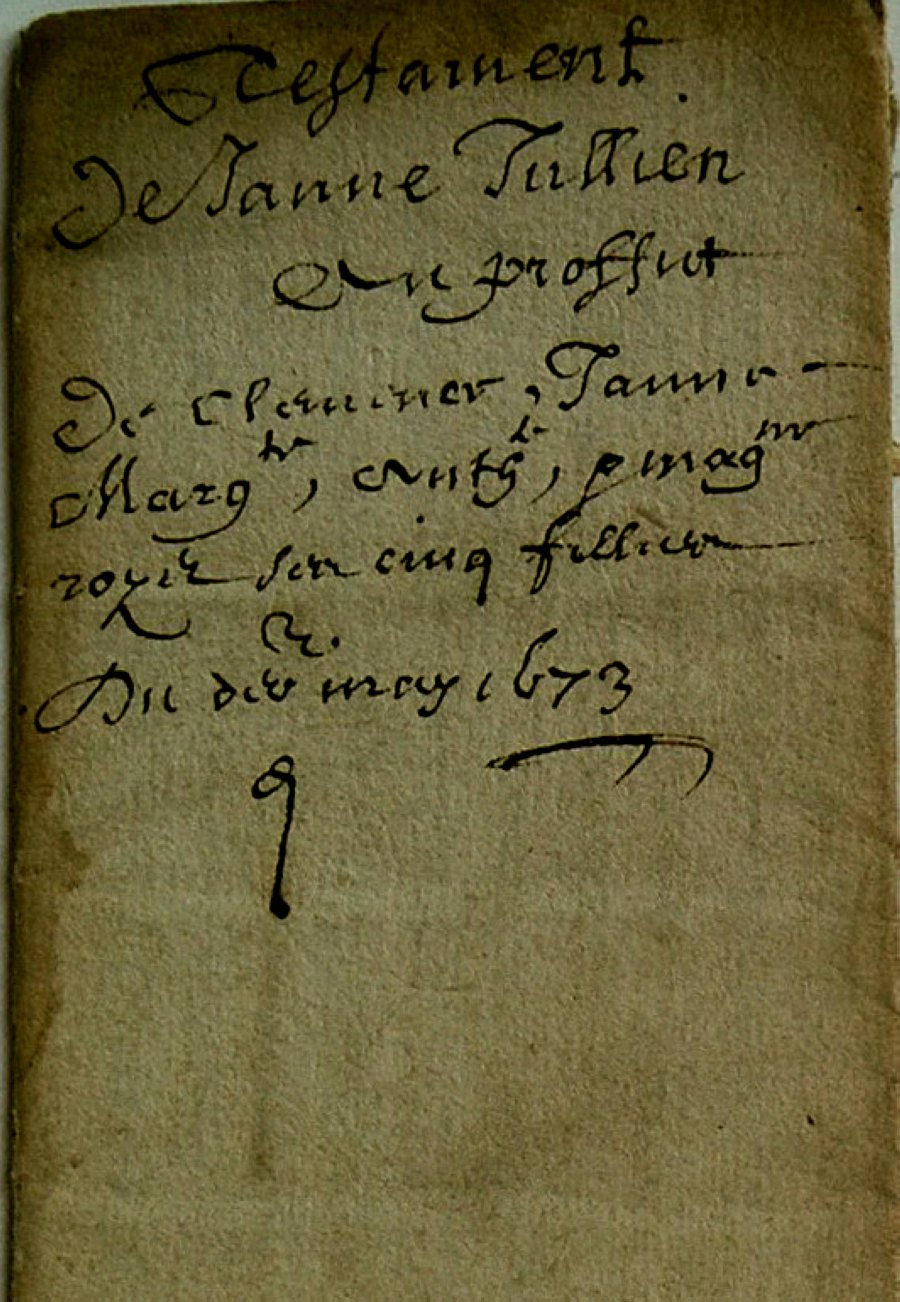 Testament
De Janne Jullien
Au proffit
De Clemence, Janne
Margte, Anthe, e
royer ses cinq filles
Du der may 1673